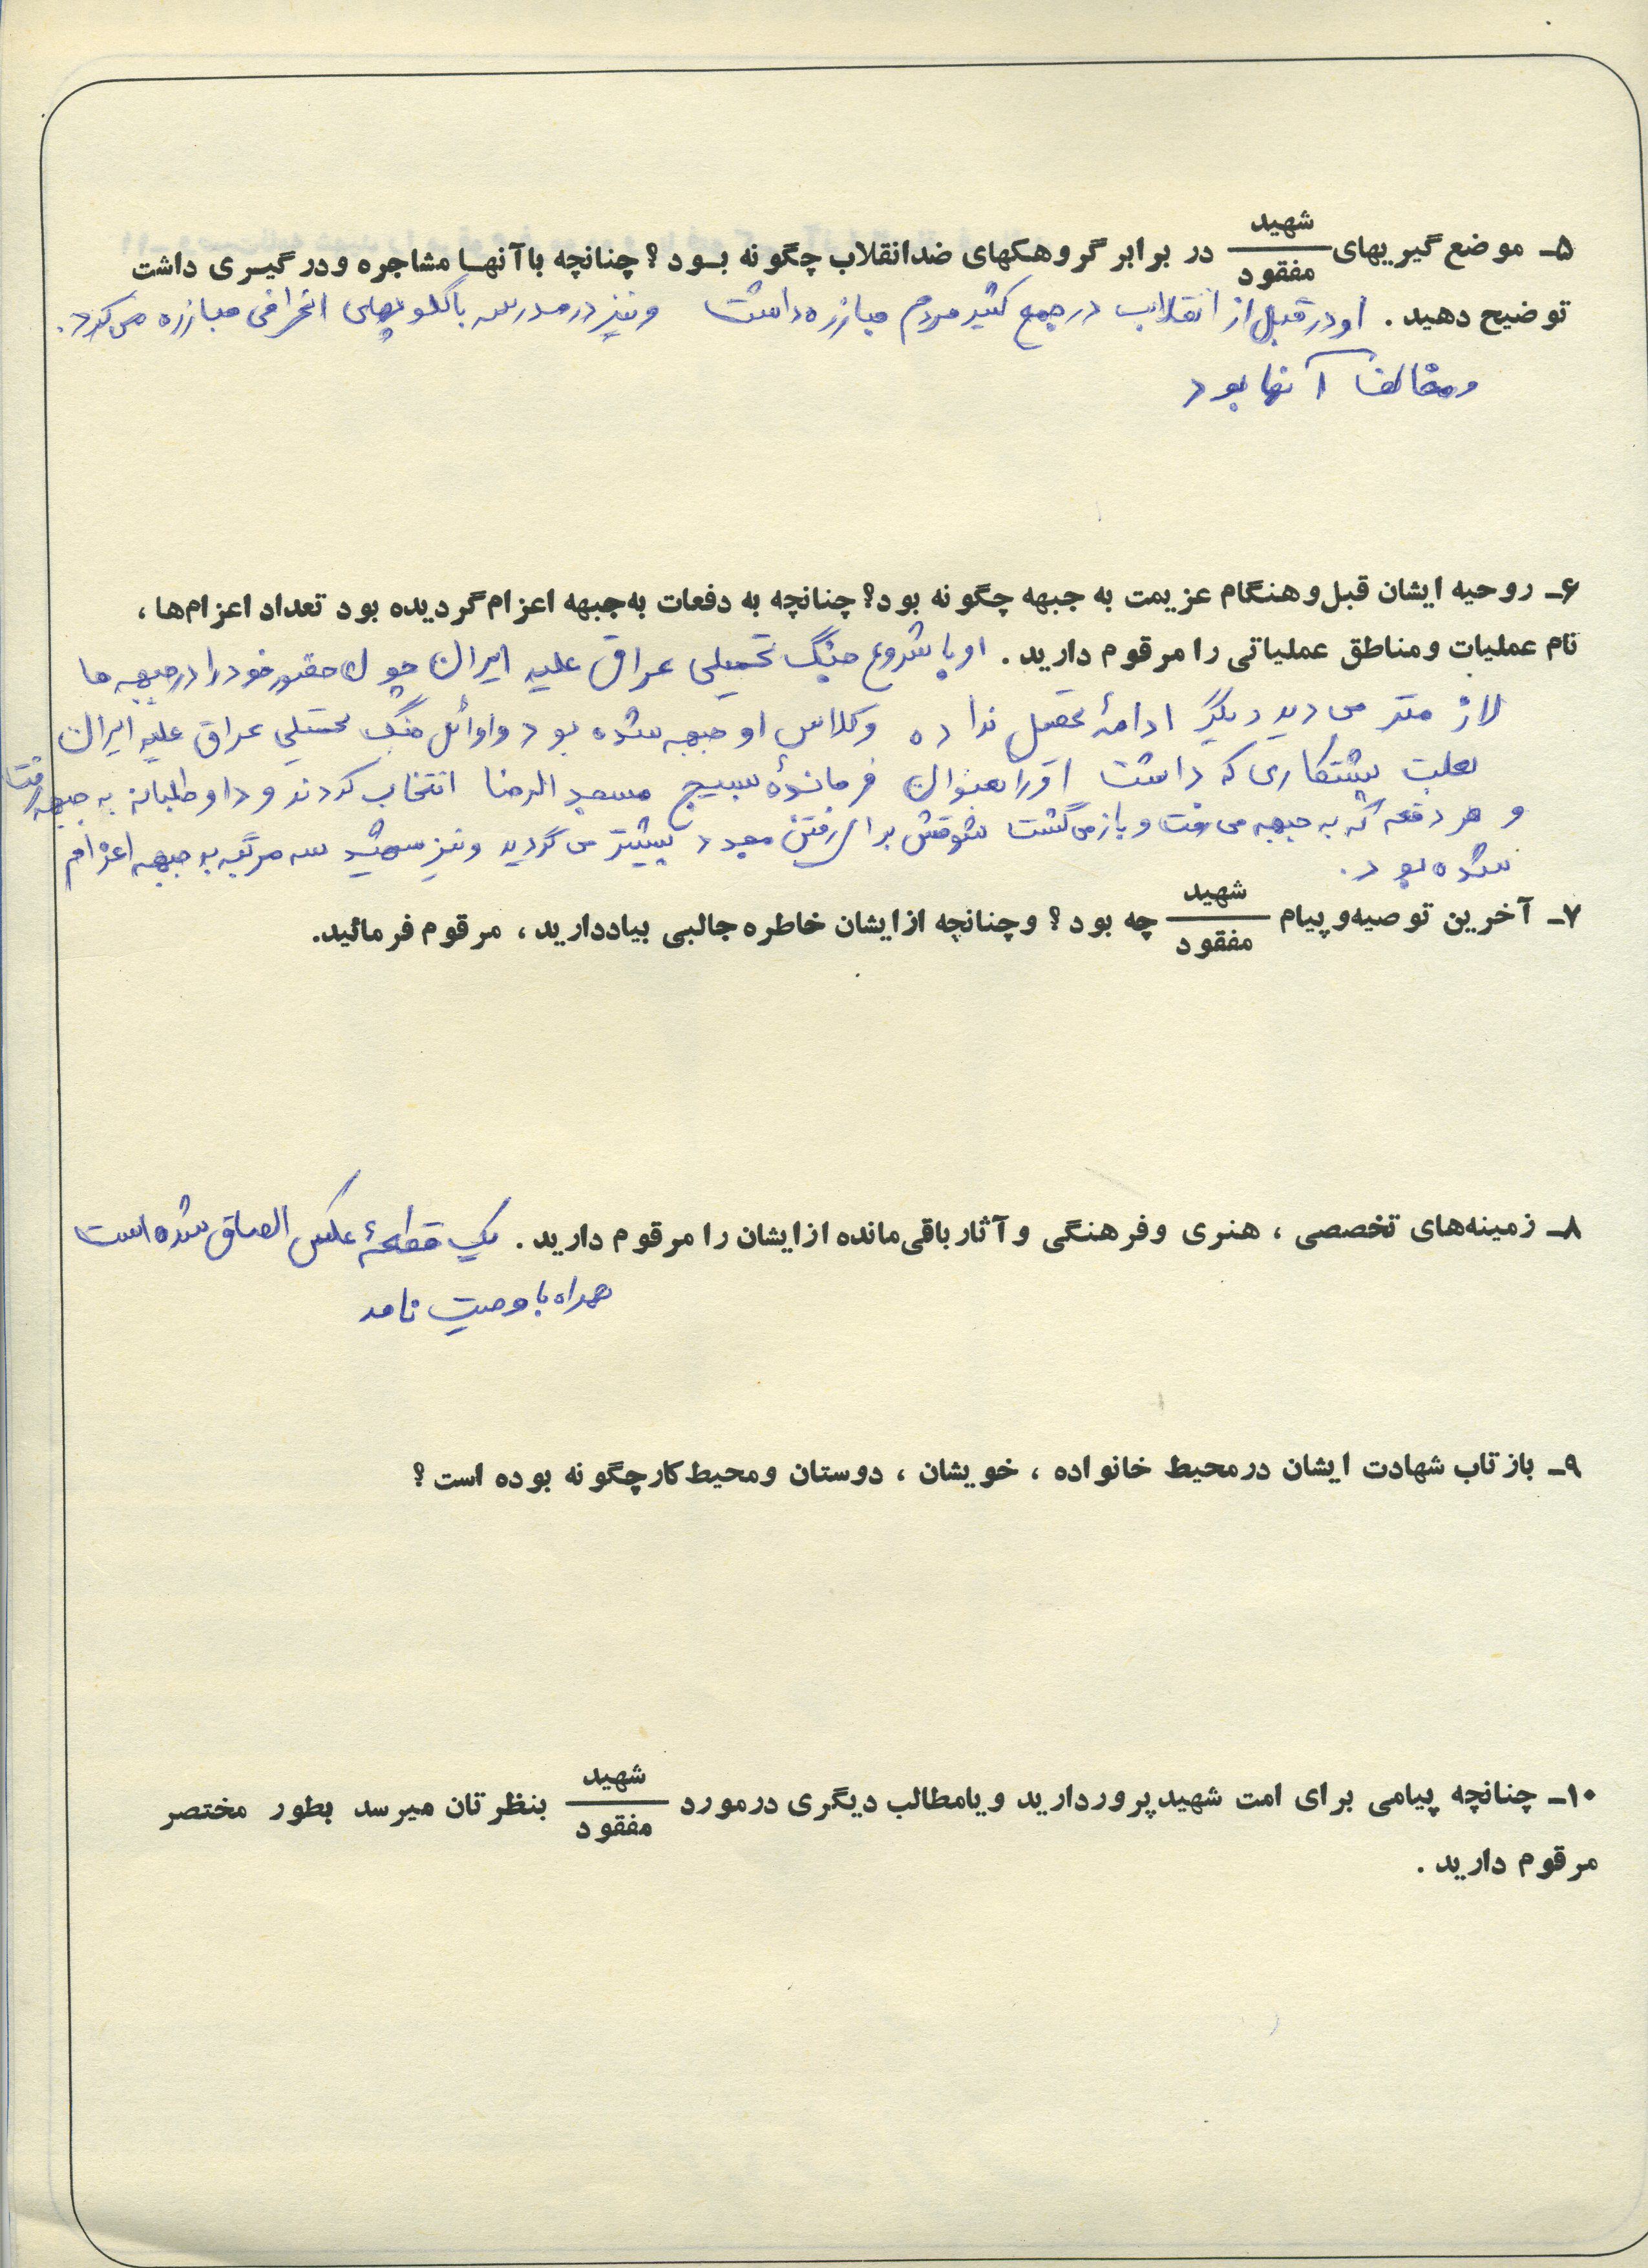 ۵ـ موضع‌گیریهای شهید/مفقود در برابر گروهکهای ضدانقلاب چگونه بود؟ چنانچه باآنها مشاجره ودرگیری داشت
توضیح دهید. او در قبل از انقلاب در جمع کثیر مردم مبارزه داشت ونیز در مدرسه با گروههای انحرافی مبارزه می‌کرد.
ومخالف آنها بود
۶ـ روحیه ایشان قبل‌وهنگام عزیمت به جبهه چگونه بود؟ چنانچه به دفعات به‌جبهه اعزام‌گردیده بود تعداد اعزام‌ها،
نام عملیات ومناطق عملیاتی را مرقوم دارید. او با شروع جنگ تحمیلی عراق علیه ایران چون حضور خود را در جبهه ها
لازمتر می دید دیگر ادامهٔ تحصیل نداده وکلاس او جبهه شده بود و اوائل جنگ تحمیلی عراق علیه ایران
بعلت پشتکاری که داشت او را بعنوان فرماندهٔ بسیج مسجد الرضا انتخاب کردند و داوطلبانه به جبهه رفت
و هر دفعه که به جبهه می رفت و باز می گشت شوقش برای رفتن مجدد بیشتر می گردید ونیز سه مرتبه به جبهه اعزام
شده بود.
۷ـ آخرین توصیه‌وپیام شهید/مفقود چه بود؟ وچنانچه ازایشان خاطره جالبی بیاددارید، مرقوم فرمائید.
۸ـ زمینه‌های تخصصی، هنری وفرهنگی وآثارباقی‌مانده ازایشان را مرقوم دارید. یک قطعهٔ عکس الصاق شده است
همراه با وصیت نامه
۹ـ بازتاب شهادت ایشان درمحیط خانواده، خویشان، دوستان ومحیط کارچگونه بوده است؟
۱۰ـ چنانچه پیامی برای امت شهیدپروردارید ویامطالب دیگری درمورد شهید/مفقود بنظرتان میرسد بطور مختصر
مرقوم دارید.